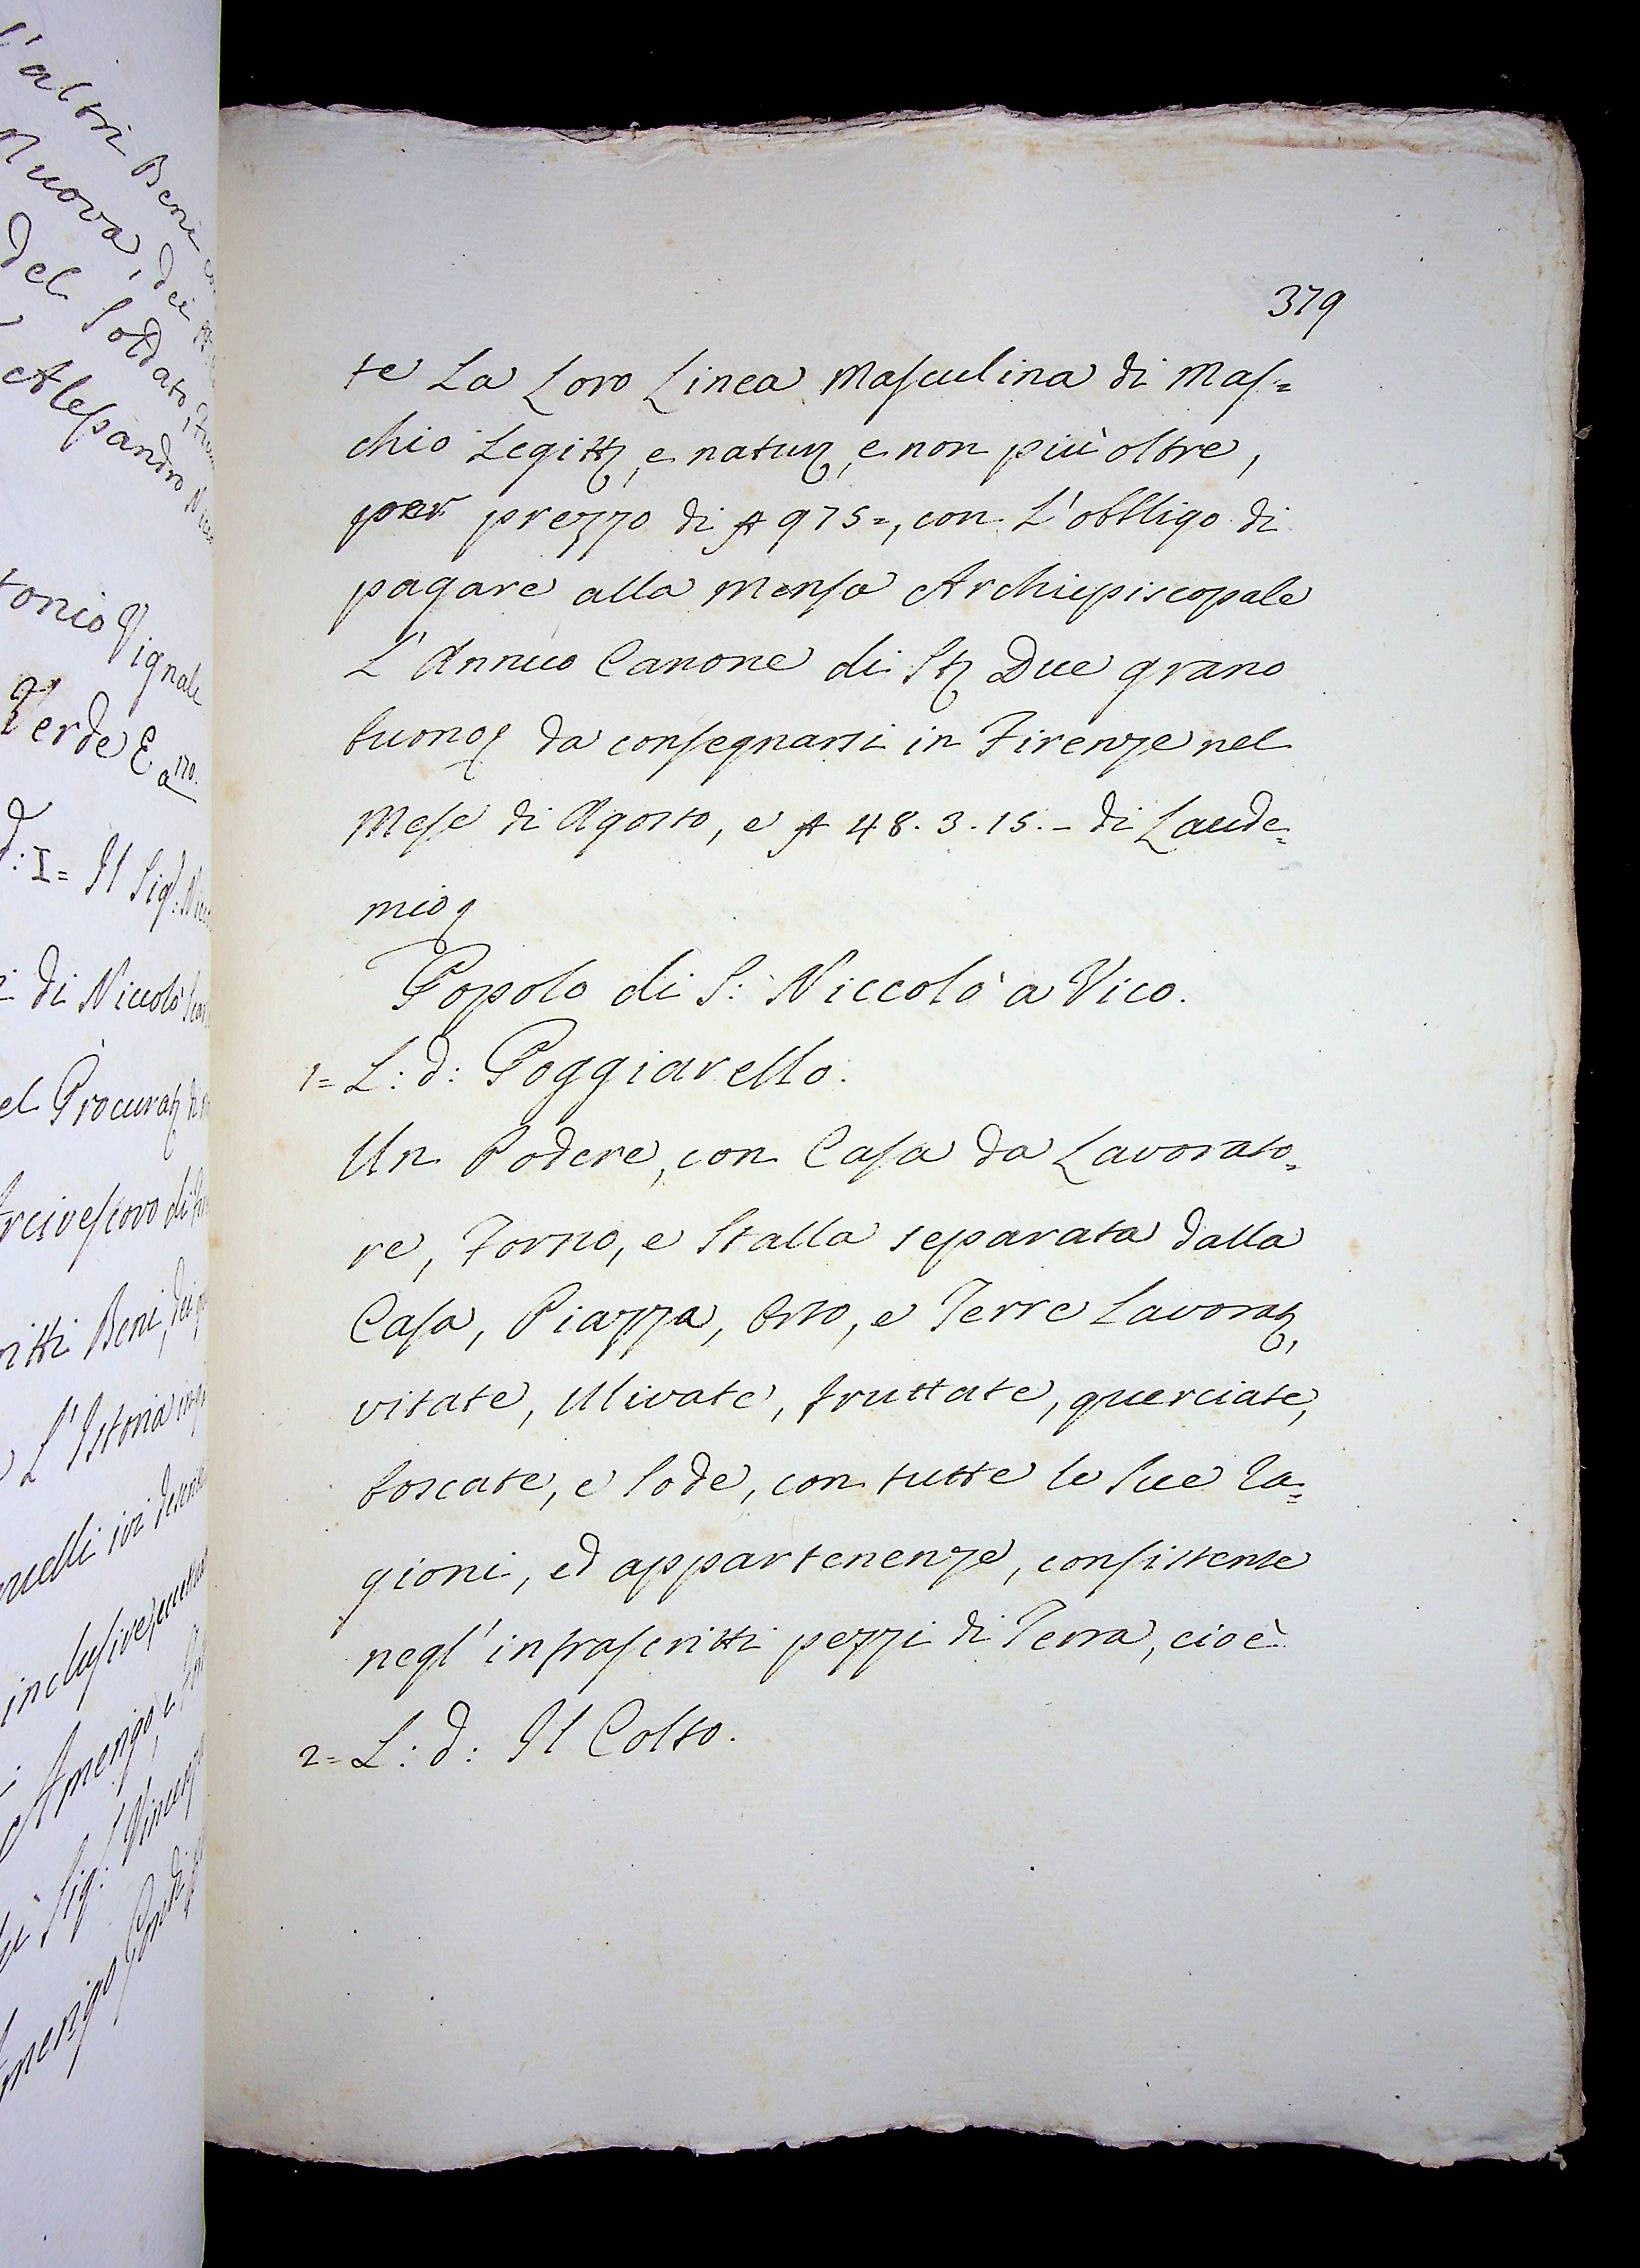 379
te La Loro Linea Masculina di Mas=
chio Legitt, e natur, e non più oltre,
per prezzo di 975=, con L'obbligo di
pagare alla Mensa Archiepiscopale
L'Annuo Canone di St Due grano
buono da consegnarsi in Firenze nel
Mese di Agosto, e 48.3.15.- di Laude=
mio
Popolo di S: Niccolò a Vico.
1= L: d: Poggiarello.
Un Podere, con Casa da Lavorato=
re, Forno, e Stalla separata dalla
Casa, Piazza, Orto, e Terre Lavorat,
vitate, Ulivate, fruttate, querciate,
boscate, e sode, con tutte le sue ra=
gioni, ed appartenenze, consistente
negl'infrascritti pezzi di Terra, cioè
2= L: d: Il Colto.
l'altri Beni
Nuova, dei
del Soldato,
Alessandro
tonio Vignale
Verde E
d: I= Il Sig:
di Niccolò
el Procurat
rcivescovo di
ritti Beni,
L'Istoria
quelli ivi
inclusive,
Amerigo, e
Sig: Vincenz
merigo